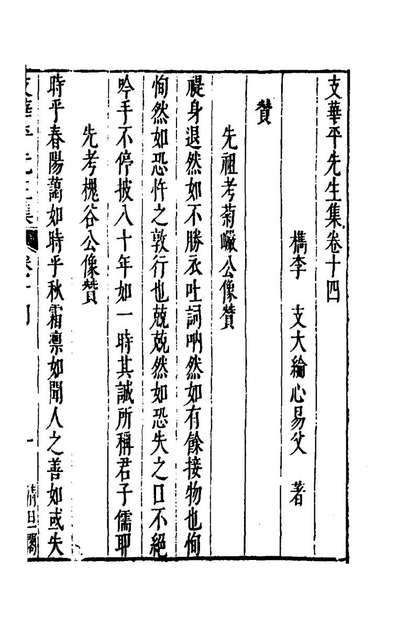 支華平先生集卷十四
檇李　支大綸心易父　著
贊
先祖考菊巘公像贊
禔身退然如不勝衣吐詞吶然如有餘接物也恂
恂然如恐忤之敦行也兢兢然如恐失之口不絕
吟手不停披八十年如一時其誠所稱君子儒耶
先考槐谷公像贊
時乎春陽藹如時乎秋霜凛如聞人之善如或失
支華平先生集　卷十四　一　清旦閣